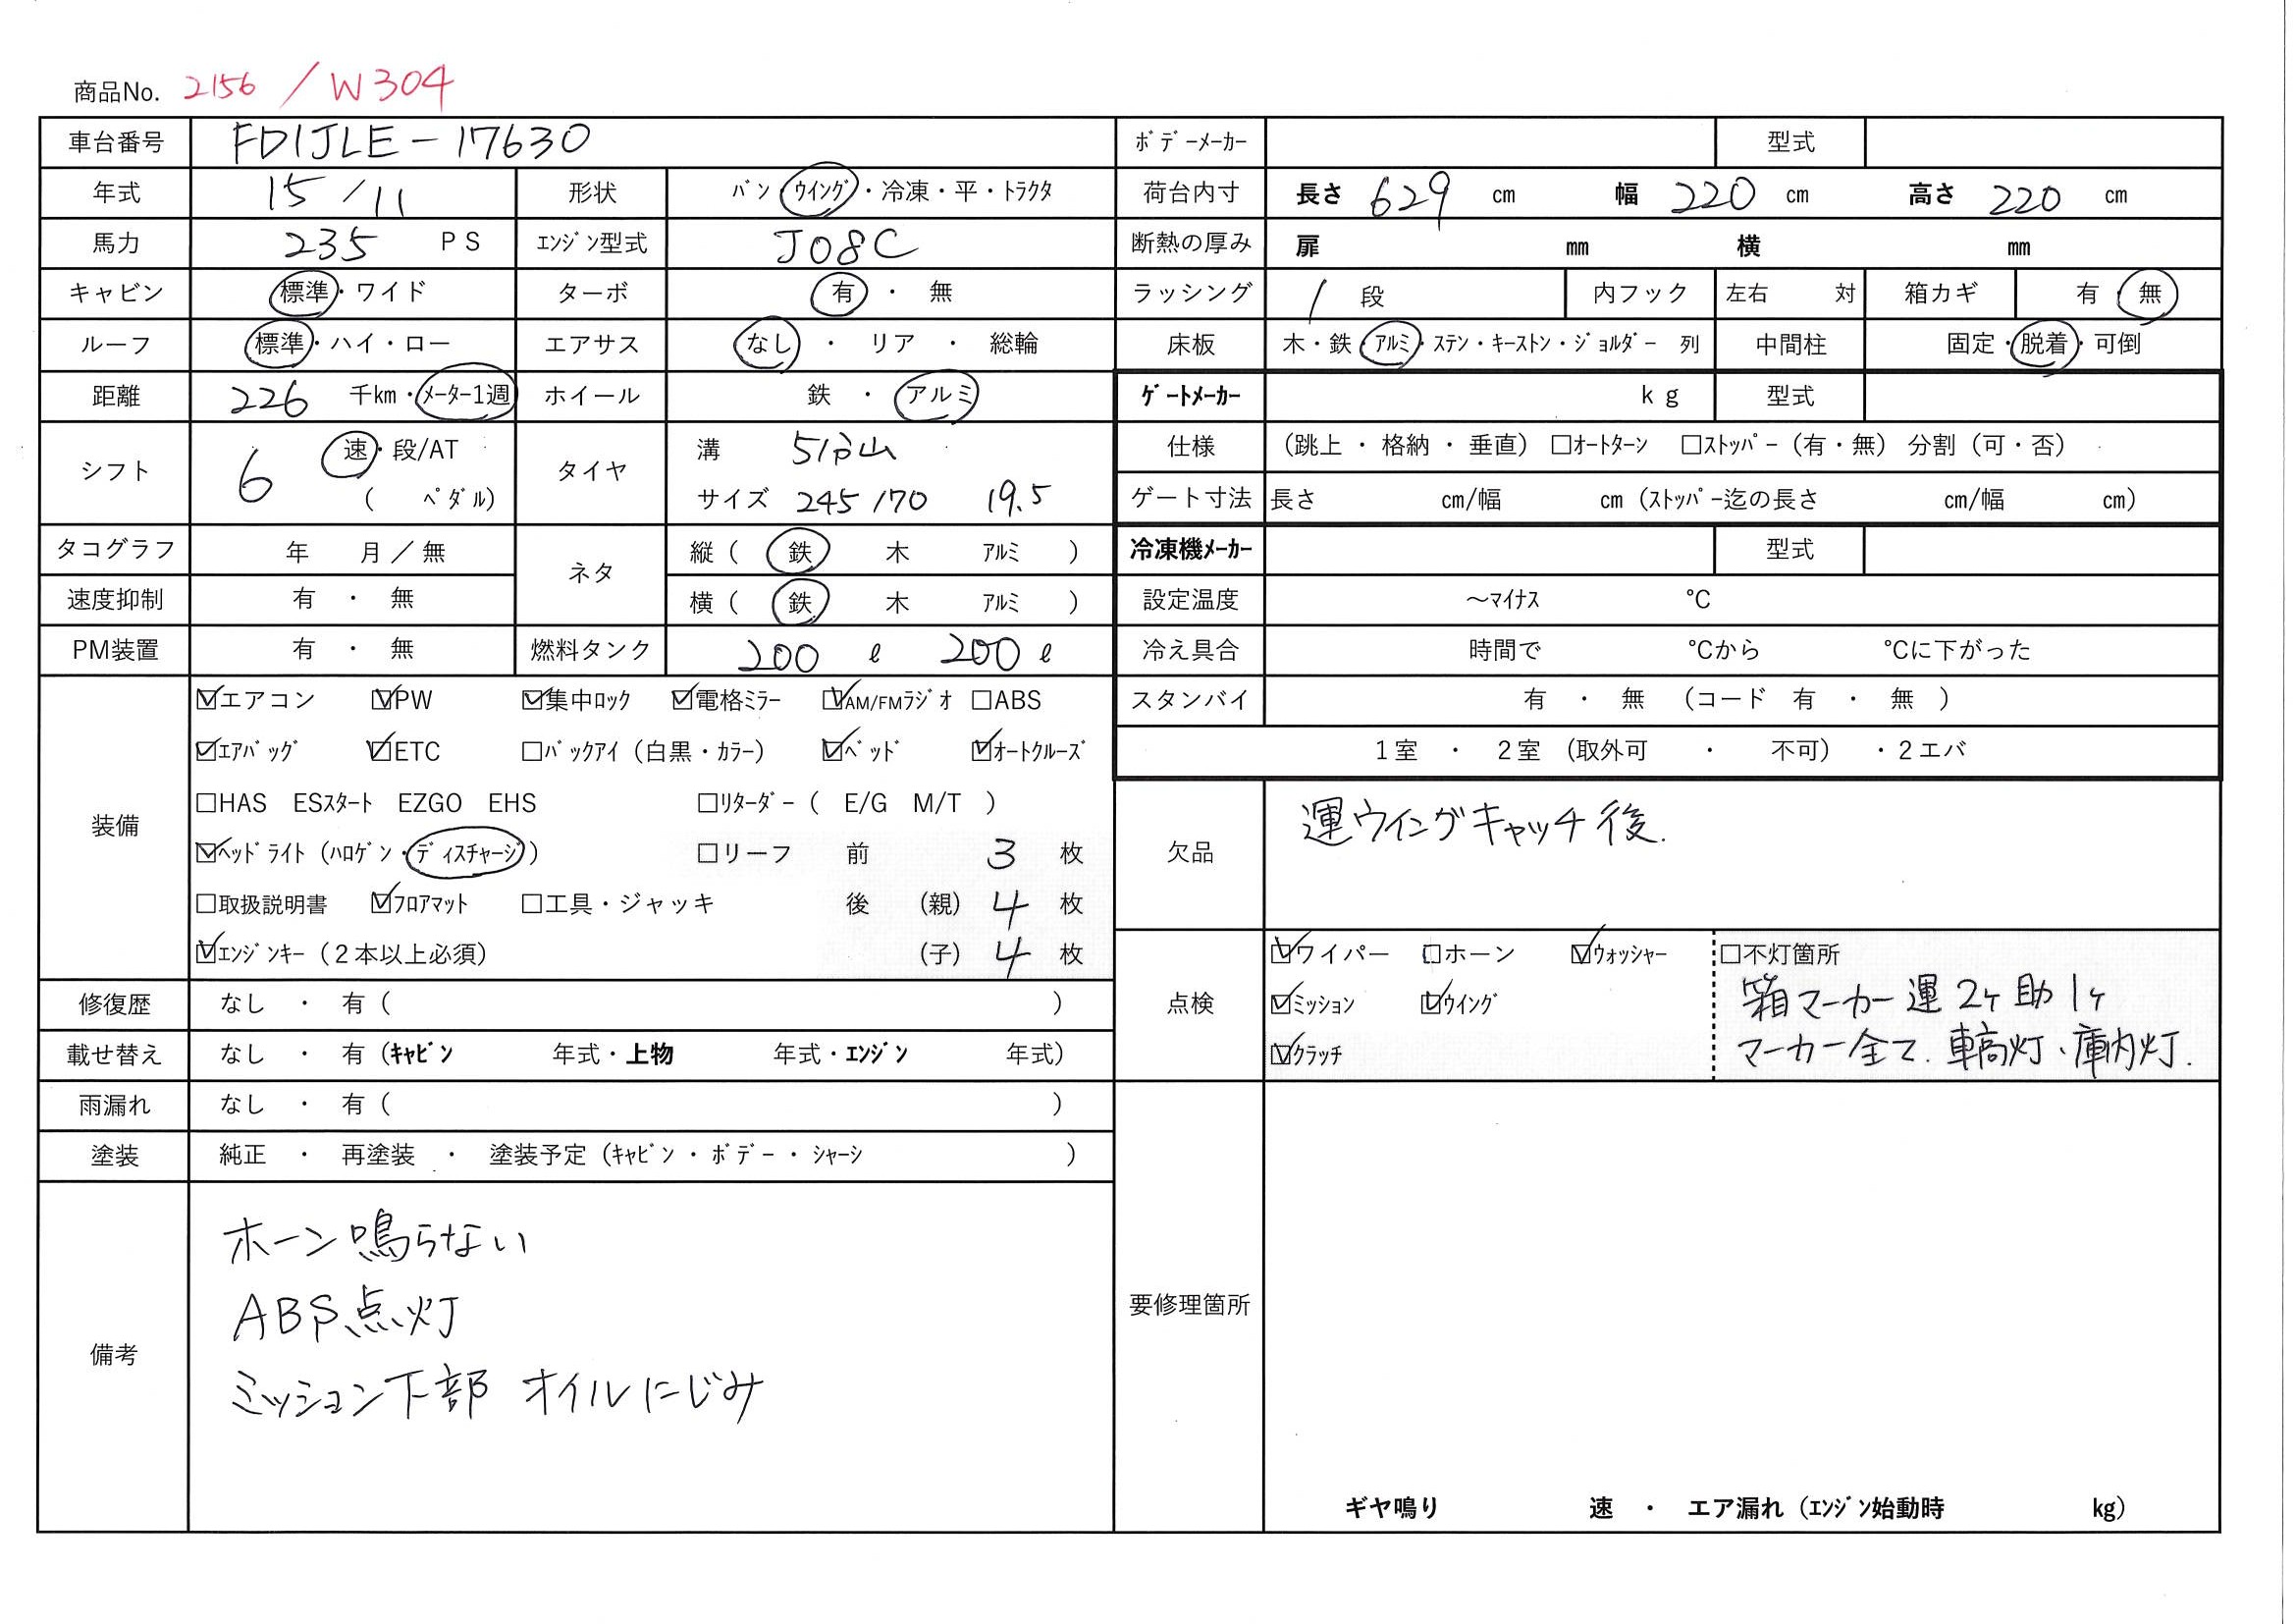 商品No. 2156 / W304
車台番号 FD1JLE-17630 ボデーメーカー 型式
年式 15/11 形状 バン・ウイング・冷凍・平・トラクタ 荷台内寸 長さ 629 cm 幅 220 cm 高さ 220 cm
馬力 235 PS エンジン型式 J08C 断熱の厚み 扉 mm 横 mm
キャビン 標準・ワイド ターボ 有 ・ 無 ラッシング 1 段 内フック 左右 対 箱カギ 有・無
ルーフ 標準・ハイ・ロー エアサス なし ・ リア ・ 総輪 床板 木・鉄・アルミ・ステン・キーストン・ジョルダー 列 中間柱 固定・脱着・可倒
距離 226 千km・メーター1週 ホイール 鉄 ・ アルミ ゲートメーカー kg 型式
シフト 6 速・段/AT ( ペダル) タイヤ 溝 5分山 仕様 (跳上 ・ 格納 ・ 垂直) □オートターン □ストッパー (有・無) 分割 (可・否)
サイズ 245/70 19.5 ゲート寸法 長さ cm/幅 cm (ストッパー迄の長さ cm/幅 cm)
タコグラフ 年 月/無 ネタ 縦 ( 鉄 木 アルミ ) 冷凍機メーカー 型式
速度抑制 有 ・ 無 横 ( 鉄 木 アルミ ) 設定温度 ~マイナス ℃
PM装置 有 ・ 無 燃料タンク 200 ℓ 200 ℓ 冷え具合 時間で ℃から ℃に下がった
装備 ☑エアコン ☑PW ☑集中ロック ☑電格ミラー ☑AM/FMラジオ □ABS スタンバイ 有 ・ 無 (コード 有 ・ 無 )
☑エアバッグ ☑ETC □バックアイ (白黒・カラー) ☑ベッド ☑オートクルーズ 1室 ・ 2室 (取外可 ・ 不可) ・2エバ
□HAS ESスタート EZGO EHS □リターダー ( E/G M/T )
☑ヘッドライト (ハロゲン・ディスチャージ) □リーフ 前 3 枚
□取扱説明書 ☑フロアマット □工具・ジャッキ 後 (親) 4 枚
☑エンジンキー (2本以上必須) (子) 4 枚
欠品 運ウイングキャッチ後.
点検 ☑ワイパー □ホーン ☑ウォッシャー □不灯箇所
☑ミッション ☑ウイング 箱マーカー運2ケ助1ケ
☑クラッチ マーカー全て、車高灯、庫内灯.
修復歴 なし ・ 有 ( )
載せ替え なし ・ 有 (キャビン 年式・上物 年式・エンジン 年式)
雨漏れ なし ・ 有 ( )
塗装 純正 ・ 再塗装 ・ 塗装予定 (キャビン ・ ボデー ・ シャーシ )
備考 ホーン鳴らない
ABS点灯
ミッション下部 オイルにじみ
要修理箇所
ギヤ鳴り 速 ・ エア漏れ (エンジン始動時 kg)